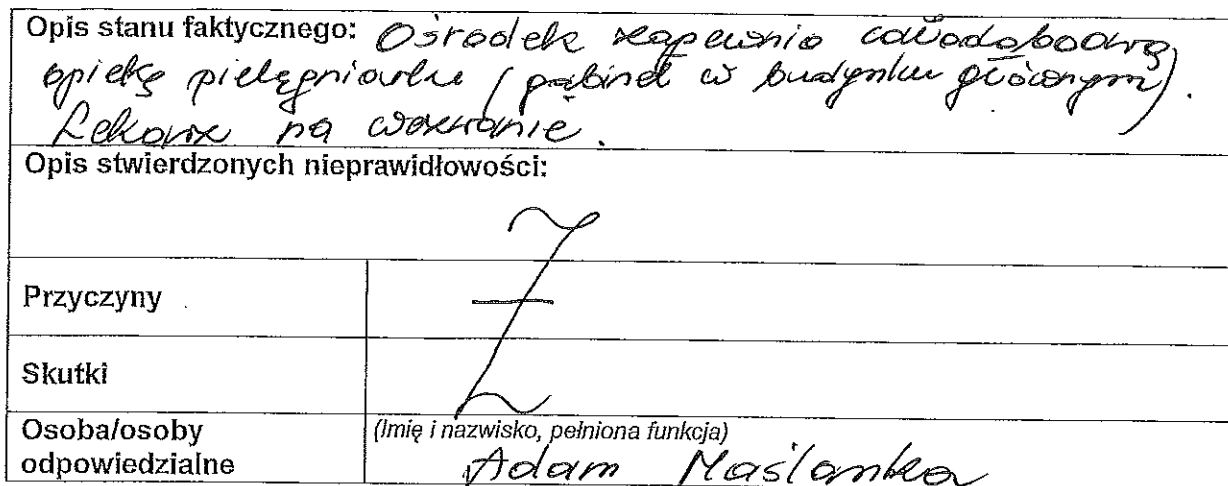 Opis stanu faktycznego: Ośrodek zapewnia całodobową
opiekę pielęgniarki (gabinet w budynku głównym).
Lekarz na wezwanie.
Opis stwierdzonych nieprawidłowości:
Przyczyny
Skutki
Osoba/osoby
odpowiedzialne
(Imię i nazwisko, pełniona funkcja)
Adam Maślanka